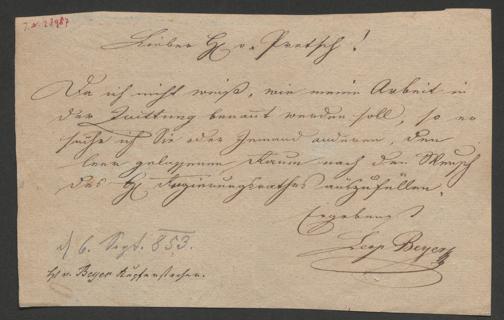 I. N. 28987
Lieber H v. Pretsch!
Da ich nicht weiß, wie meine Arbeit in
der Quittung benannt werden soll, so er
suche ich Sie oder Jemand anderen, den
leer gelassenen Raum nach den Wunsch
des H Regierungsrathes auszufüllen.
Ergebenst
Leop Beyer
6. Sept. 853.
v. Beyer Kupferstecher.